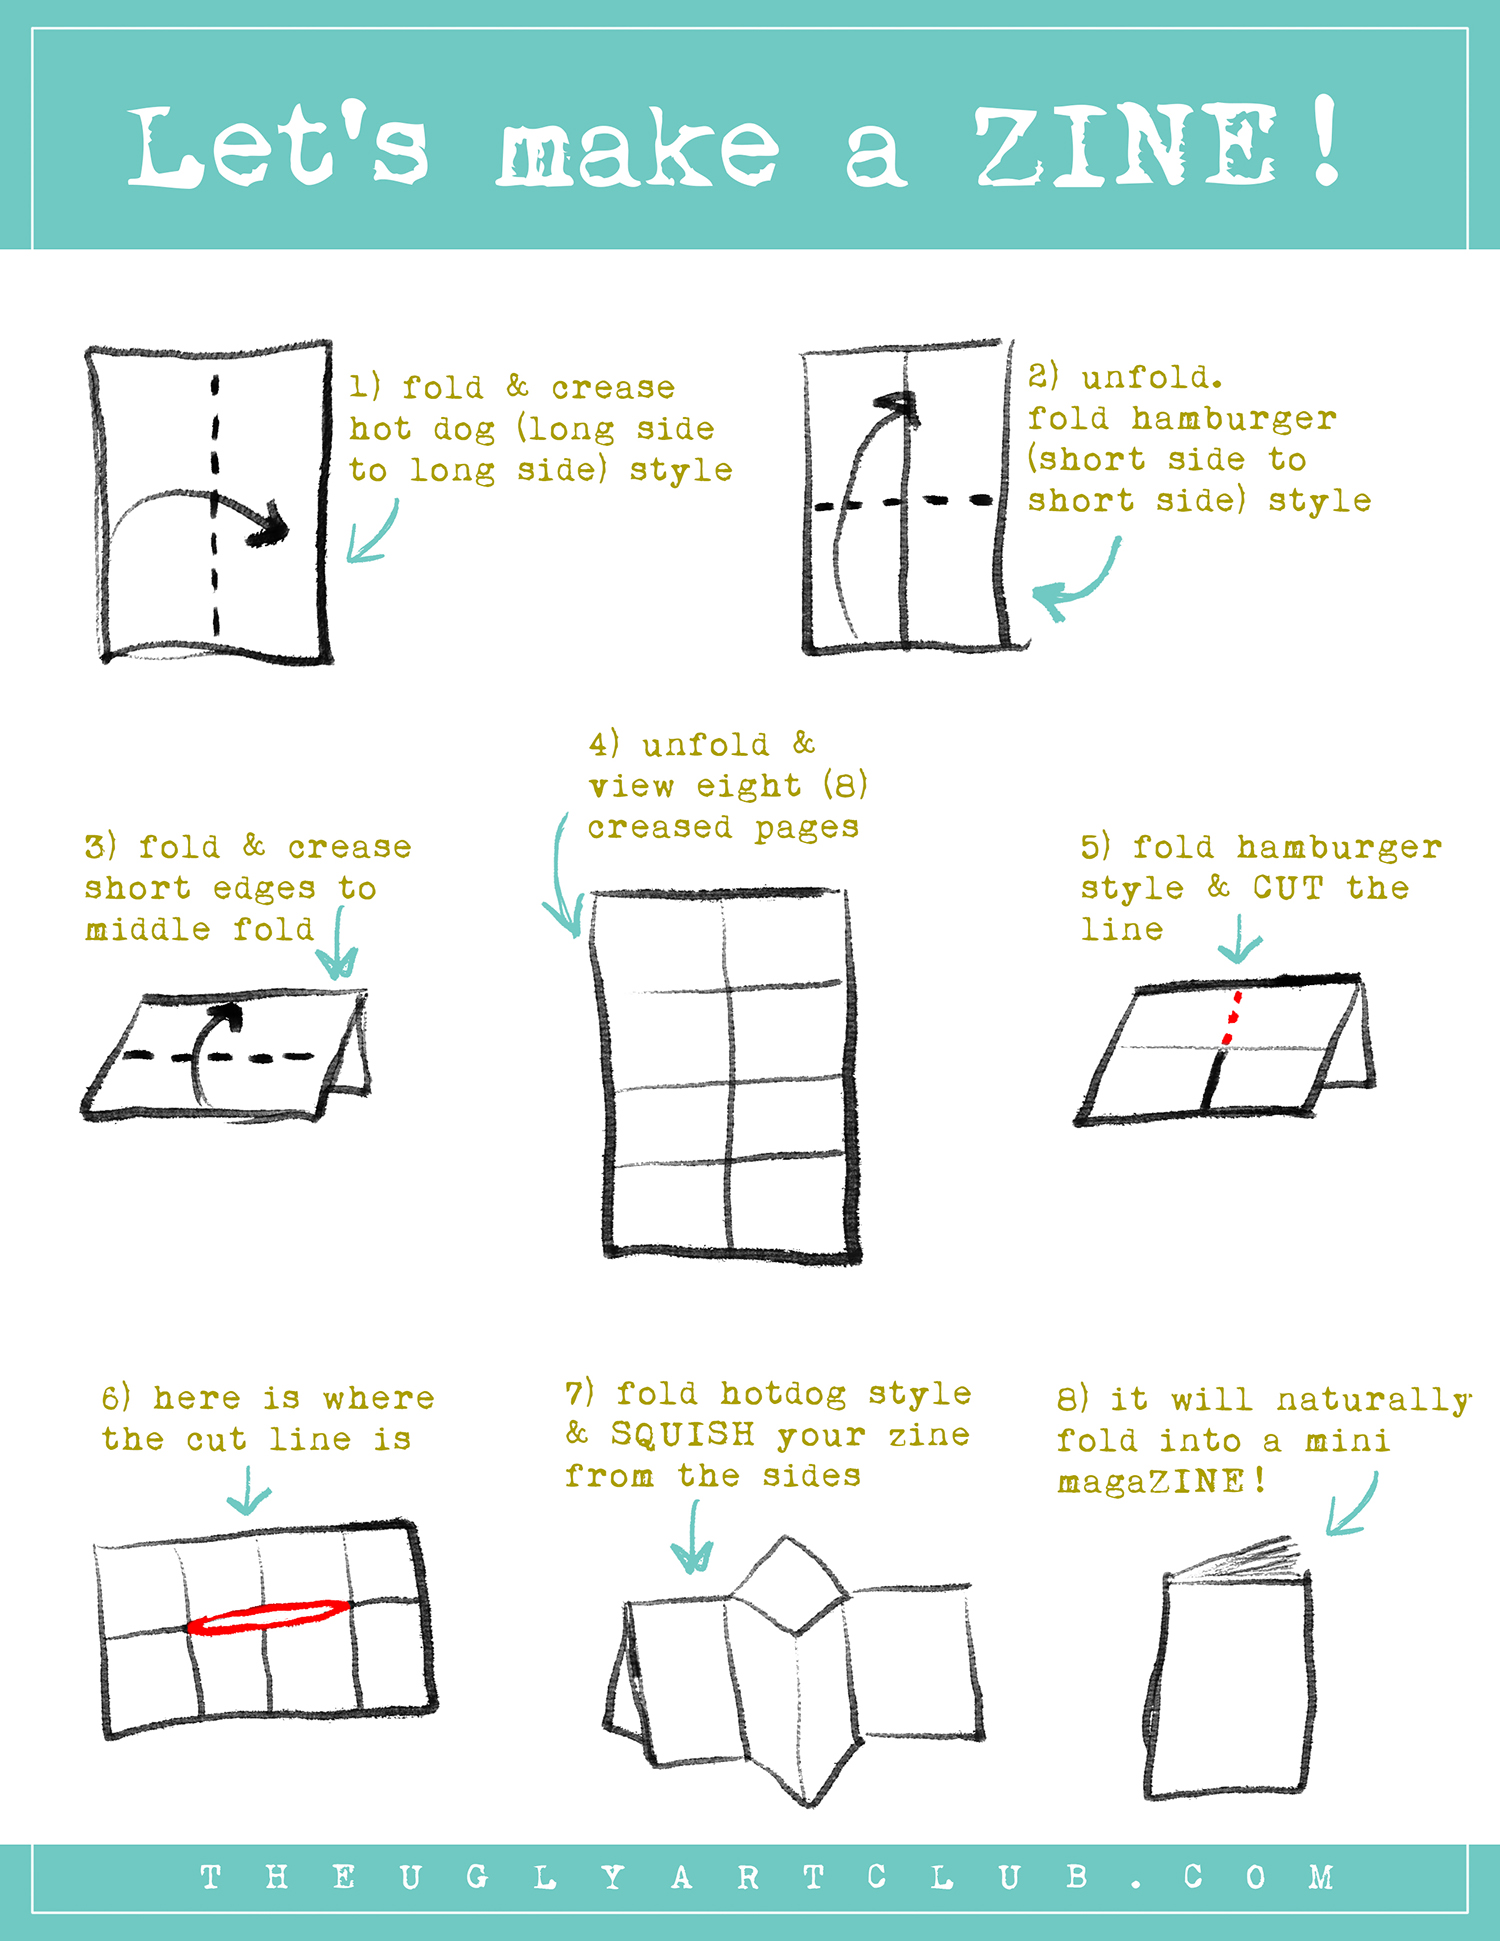 Let's make a ZINE!
1) fold & crease
hot dog (long side
to long side) style
2) unfold.
fold hamburger
(short side to
short side) style
3) fold & crease
short edges to
middle fold
4) unfold &
view eight (8)
creased pages
5) fold hamburger
style & CUT the
line
6) here is where
the cut line is
7) fold hotdog style
& SQUISH your zine
from the sides
8) it will naturally
fold into a mini
magaZINE!
THEUGLYARTCLUB.COM